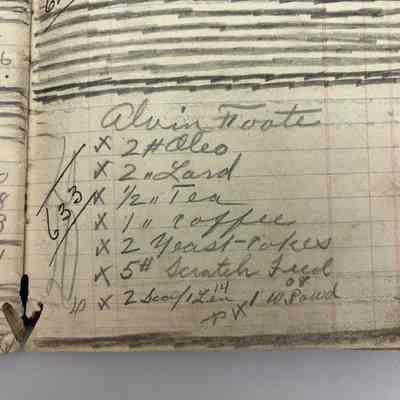 Alvin Foote
x 2 # Oleo
x 2 " Lard
x ½ " Tea
x 1 " Coffee
x 2 Yeast-Cakes
x 5# Scratch Feed
x 2 Soap 1 Len 14
x 1 W. Powd 08
633